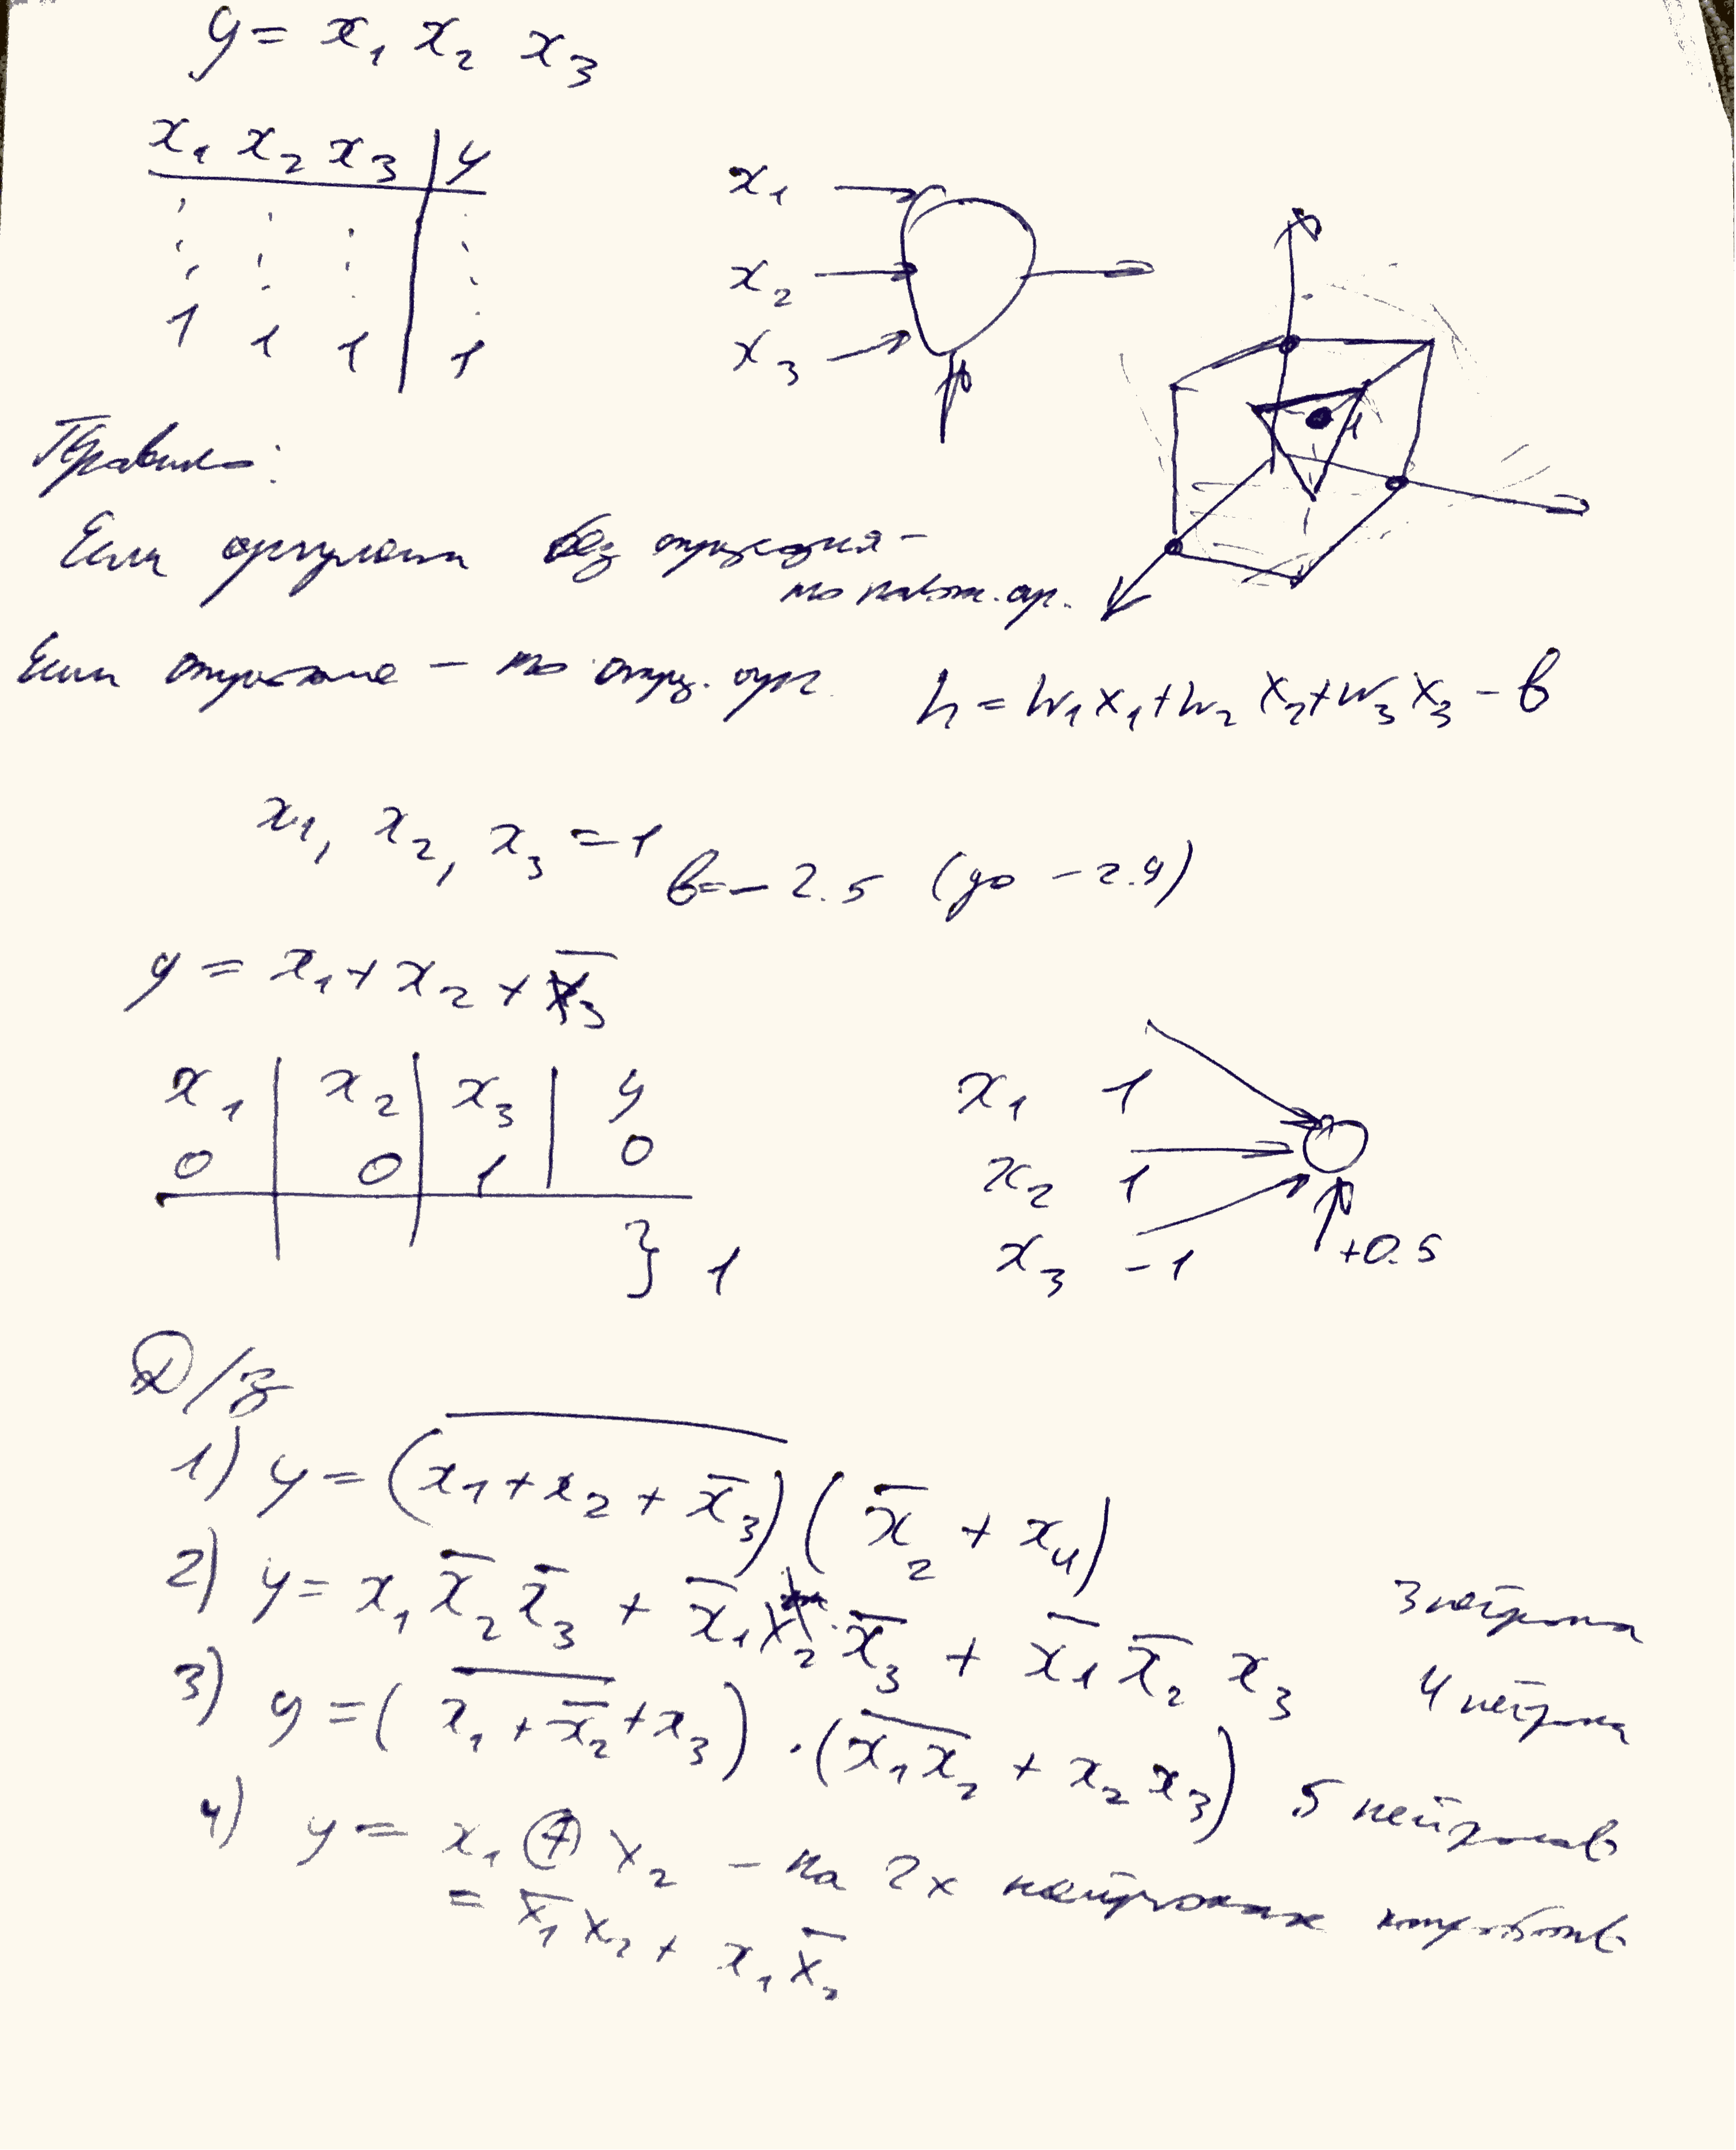 y = x₁ x₂ x₃
x₁ x₂ x₃ | y
1 1 1 | 1
x₁
x₂
x₃
1
Правило:
Если аргумент без отрицания –
то полож. ар.
Если отрицание – то отриц. арг.
h = w₁x₁ + w₂x₂ + w₃x₃ – b
x₁, x₂, x₃ = 1
b = – 2.5 (до – 2.9)
y = x₁ + x₂ + x̅₃
x₁ | x₂ | x₃ | y
0 | 0 | 1 | 0
} 1
x₁ 1
x₂ 1
x₃ –1
+0.5
Д/з
1) y = (x₁ + x₂ + x̅₃)̅ (x̅₂ + x₄)
3 нейрона
2) y = x₁ x̅₂ x̅₃ + x̅₁ x₂ x̅₃ + x̅₁ x̅₂ x₃
4 нейрона
3) y = ( x̅₁̅ ̅+̅ ̅x̅₂ + x₃) · (x̅₁̅x̅₂ + x₂ x₃) 5 нейронов
4) y = x₁ ⊕ x₂ – на 2х нейронах
= x̅₁ x₂ + x₁ x̅₂